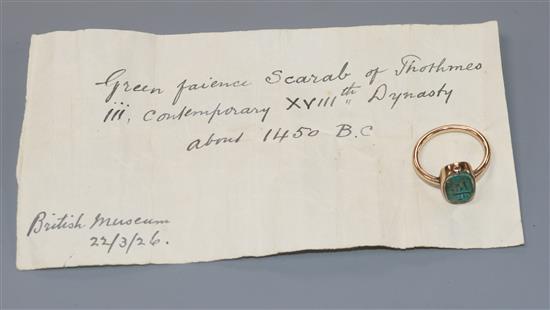 Green faience Scarab of Thothmes
iii, contemporary XVIIIth Dynasty
about 1450 B.C
British Museum
22/3/26.